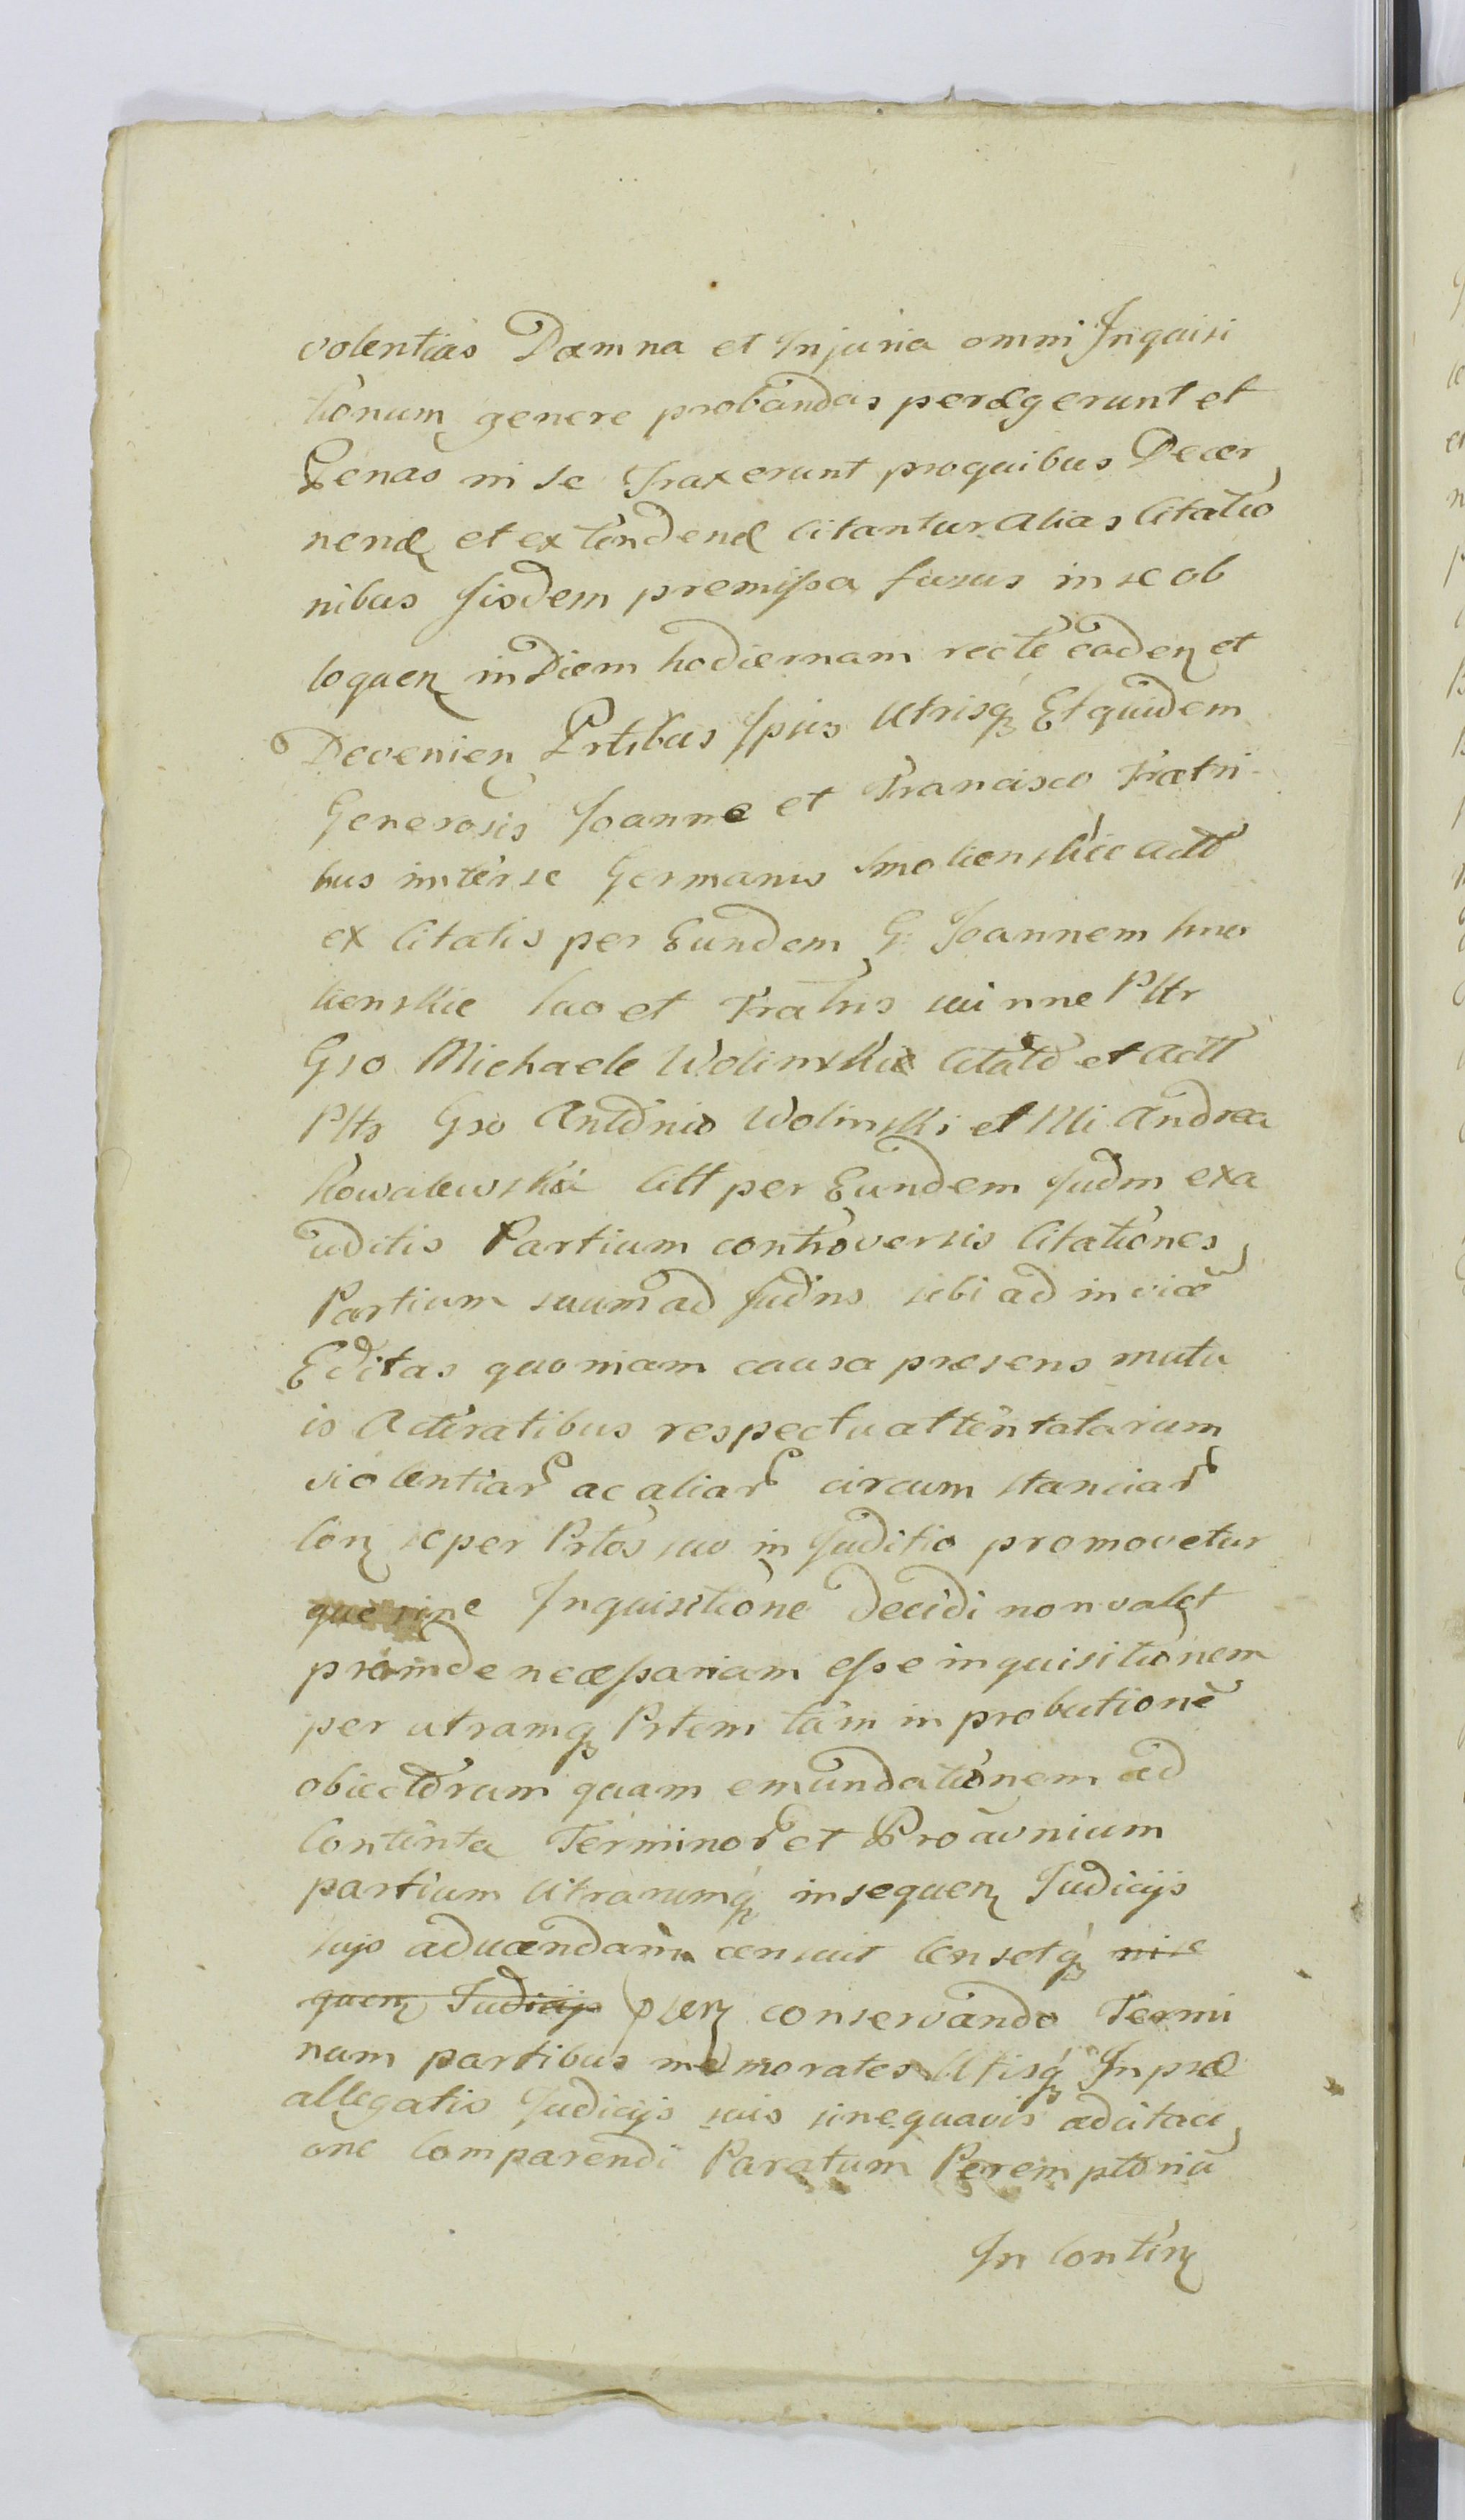 volentias Damna et Injuria omni Inquisi
tionum genere probandas peregerunt et
Penas in se Traxerunt pro quibus Decer
nend et extendend Citantur alias Citatio
nibus Iisdem premissa fusius in se ob
loquen in Diem hodiernam recte caden et
Devenien Prtibus Ipsis Utrisq Et quidem
Generosis Joanne et Francisco Fratri
bus inter se Germanis Smolienskie Actt
ex Citatis per Eundem G: Joannem Smo
lienskie suo et Fratris sui nne Pltr
Gso Michaele Wolinskie Citato et Actt
Pltr Gso Antonio Wolinski et Mi Andrea
Kowalewski Citt per Eundem Judm exa
uditis Partium controversis Citationes
Partium suum ad Judns sibi ad invice
Editas quoniam causa presens mutu
is Actoratibus respectu attentatarum
violentiar ac aliar circumstanciar
Con se per Prtes suo in Juditio promovetur
que sine Inquisitione Decidi non valet
proinde necessariam esse inquisitionem
per utramq Prtem tam in probatione
obiectorum quam emundationem ad
Contenta Terminor et Proavnium
partium Utrarumq in sequen Judicijs
sujs aducendam censuit Censetq nise
quen Judicijs pser conservando Termi
num partibus memorates Utisq In præ
allegatis Judicijs suis sine quavis adcitaci
one Comparendi Paratum Peremptoriu
In Contin